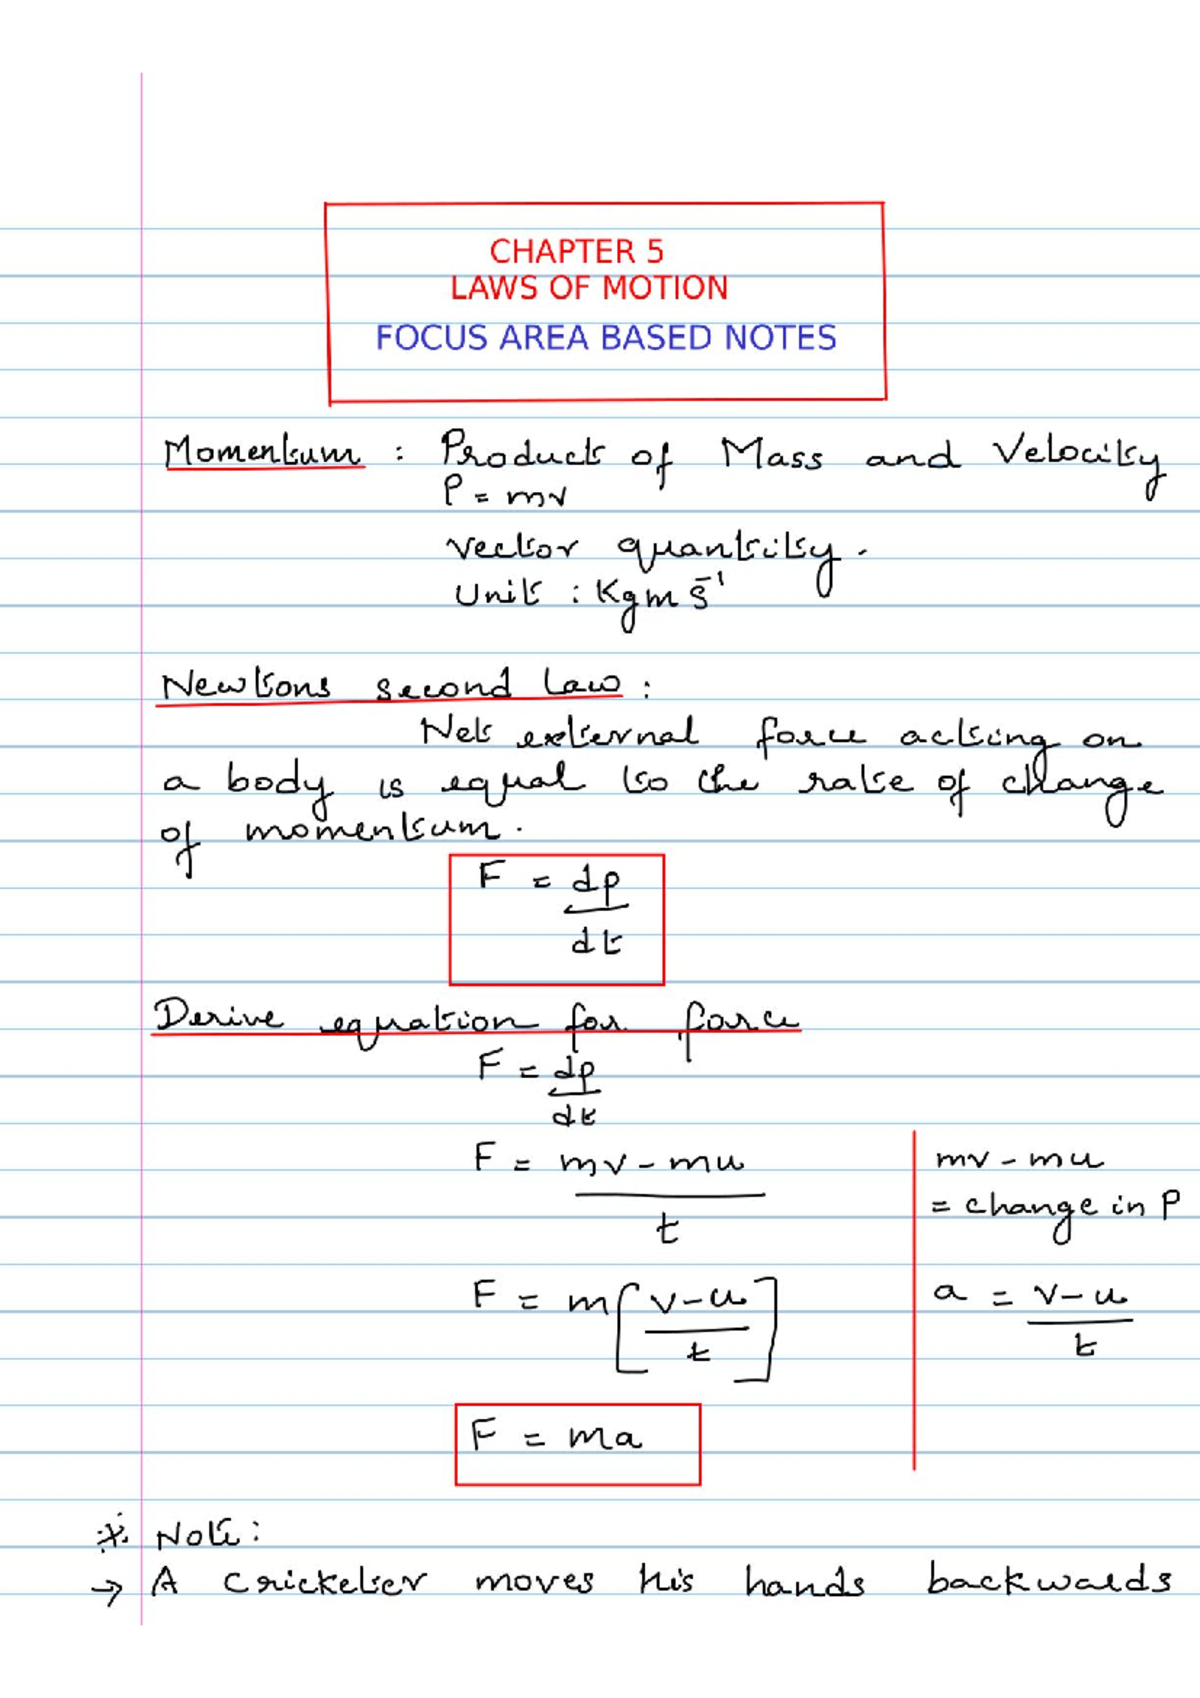 CHAPTER 5
LAWS OF MOTION
FOCUS AREA BASED NOTES
Momentum : Product of Mass and Velocity
P = mv
Vector quantity.
Unit : Kgms⁻¹
Newtons second Law :
Net external force acting on
a body is equal to the rate of change
of momentum.
F = dp
dt
Derive equation for force
F = dp
dt
F = mv - mu
t
mv - mu
= change in P
F = m[v-u
t]
a = v-u
t
F = ma
※ Note:
→ A cricketer moves his hands backwards